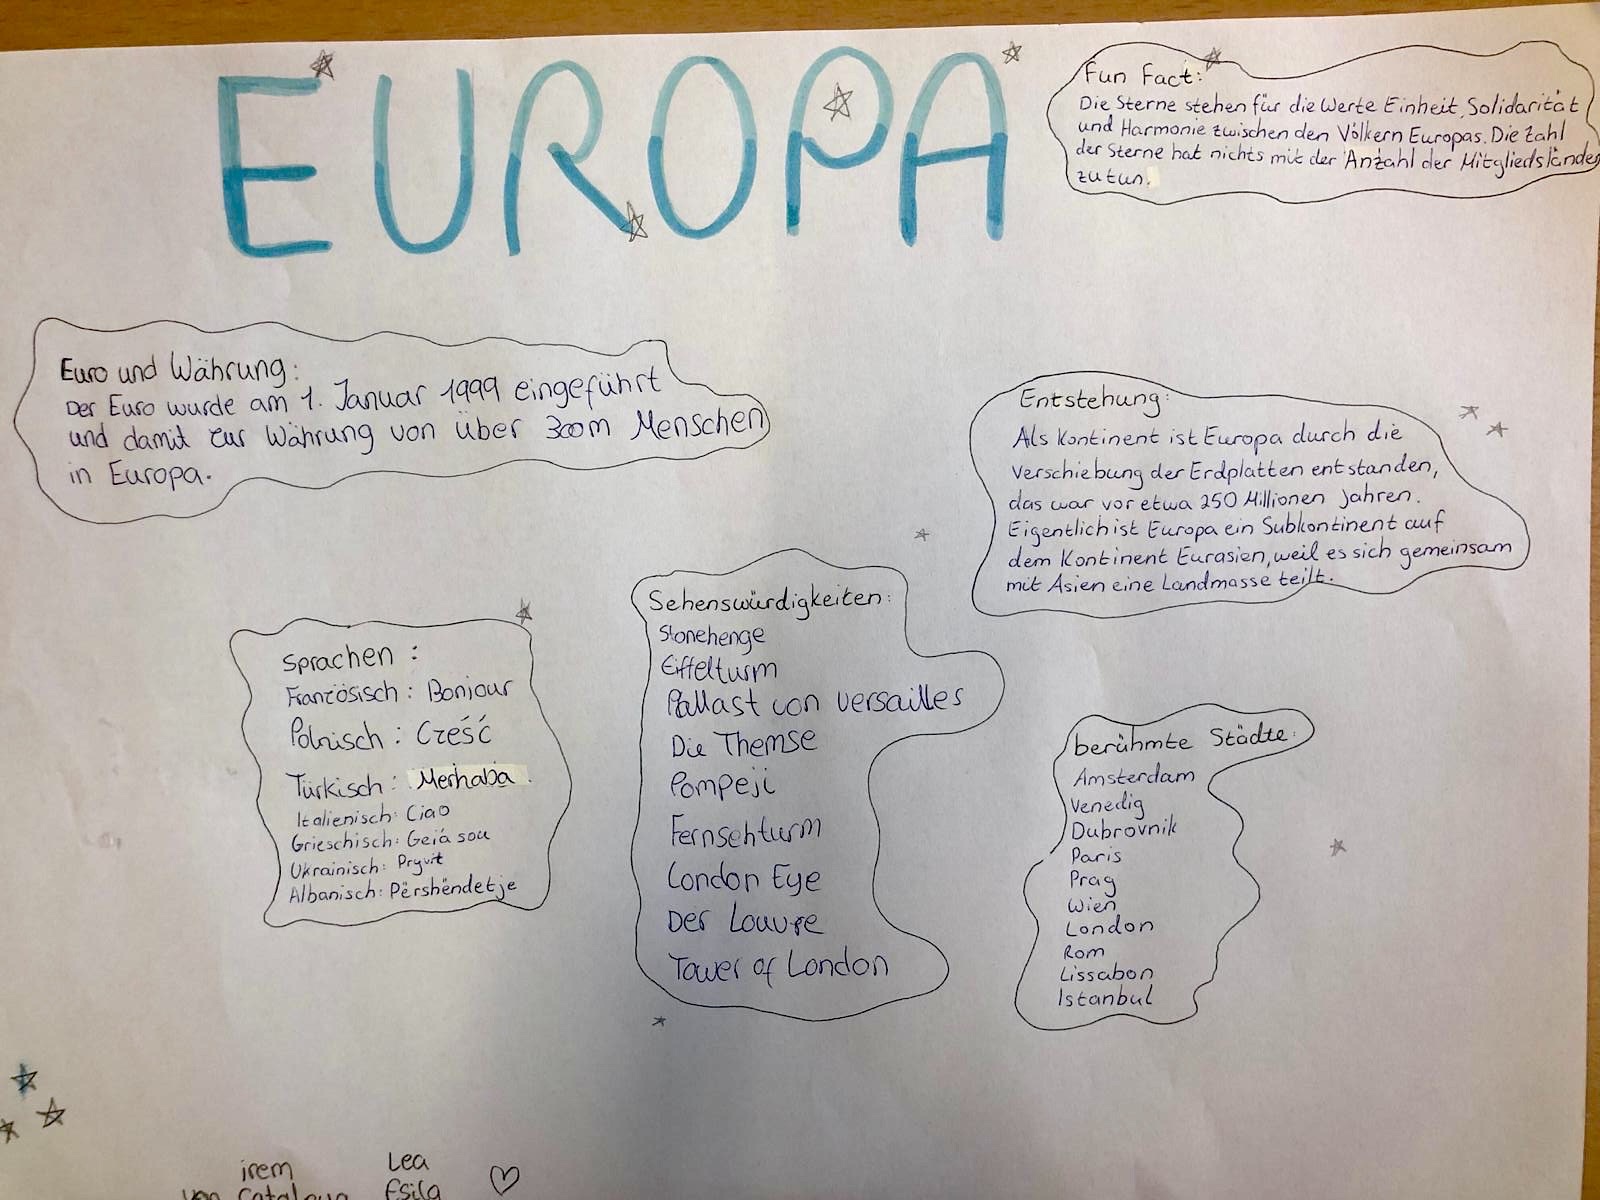 EUROPA
Fun Fact:
Die Sterne stehen für die Werte Einheit, Solidarität
und Harmonie zwischen den Völkern Europas. Die Zahl
der Sterne hat nichts mit der Anzahl der Mitgliedsländer
zu tun.
Euro und Währung:
Der Euro wurde am 1. Januar 1999 eingeführt
und damit zur Währung von über 300m Menschen
in Europa.
Entstehung:
Als Kontinent ist Europa durch die
Verschiebung der Erdplatten entstanden,
das war vor etwa 250 Millionen Jahren.
Eigentlich ist Europa ein Subkontinent auf
dem Kontinent Eurasien, weil es sich gemeinsam
mit Asien eine Landmasse teilt.
Sprachen:
Französisch: Bonjour
Polnisch: Cześć
Türkisch: Merhaba
Italienisch: Ciao
Grieschisch: Geiá sou
Ukrainisch: Pryvit
Albanisch: Përshëndetje
Sehenswürdigkeiten:
Stonehenge
Eiffelturm
Pallast von Versailles
Die Themse
Pompeji
Fernsehturm
London Eye
Der Louvre
Tower of London
berühmte Städte:
Amsterdam
Venedig
Dubrovnik
Paris
Prag
Wien
London
Rom
Lissabon
Istanbul
irem Lea
von Esila